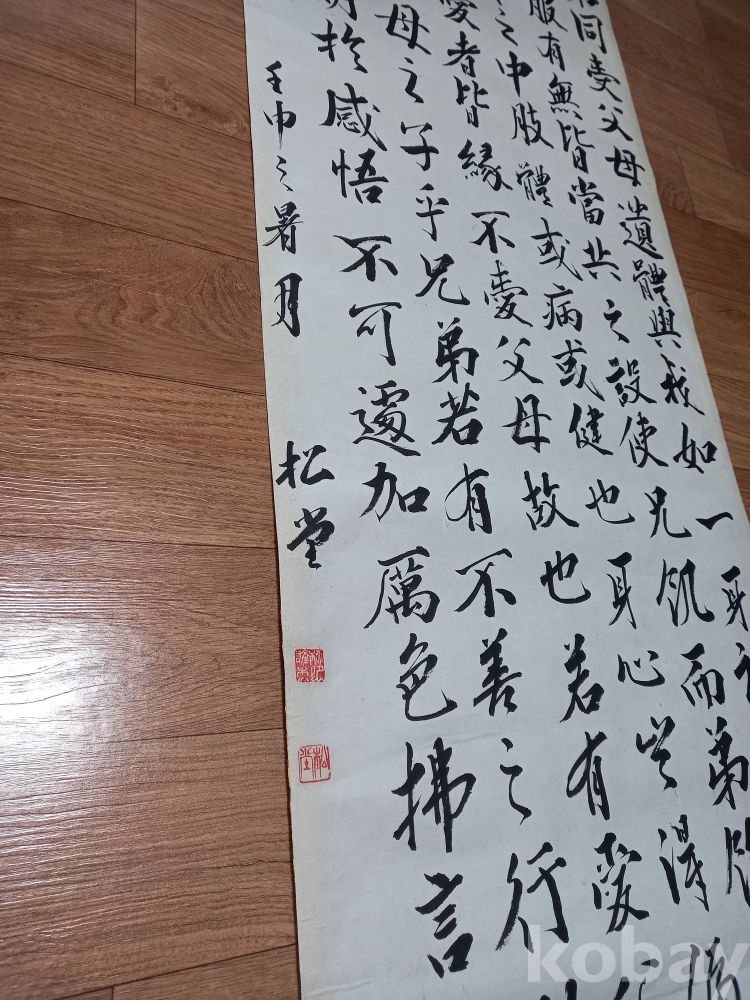 同受父母遺體與我如一身
服有無皆當共之設使兄飢而弟
之中肢體或病或健也身心豈得
愛者皆緣不愛父母故也若有愛
母之子乎兄弟若有不善之行
於感悟不可遽加厲色拂言
壬申之暑月 松堂
松堂
kobay